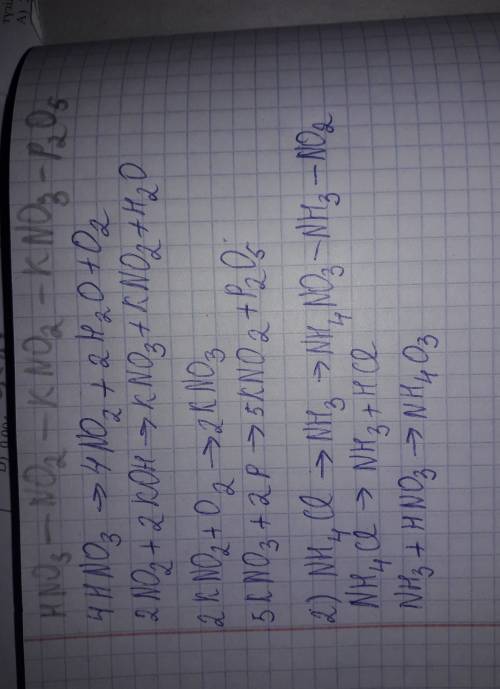 HNO₃ — NO₂ — KNO₂ — KNO₃ — P₂O₅
4HNO₃ → 4NO₂ + 2H₂O + O₂
2NO₂ + 2KOH → KNO₃ + KNO₂ + H₂O
2KNO₂ + O₂ → 2KNO₃
5KNO₃ + 2P → 5KNO₂ + P₂O₅
2) NH₄Cl → NH₃ → NH₄NO₃ — NH₃ — NO₂
NH₄Cl → NH₃ + HCl
NH₃ + HNO₃ → NH₄O₃